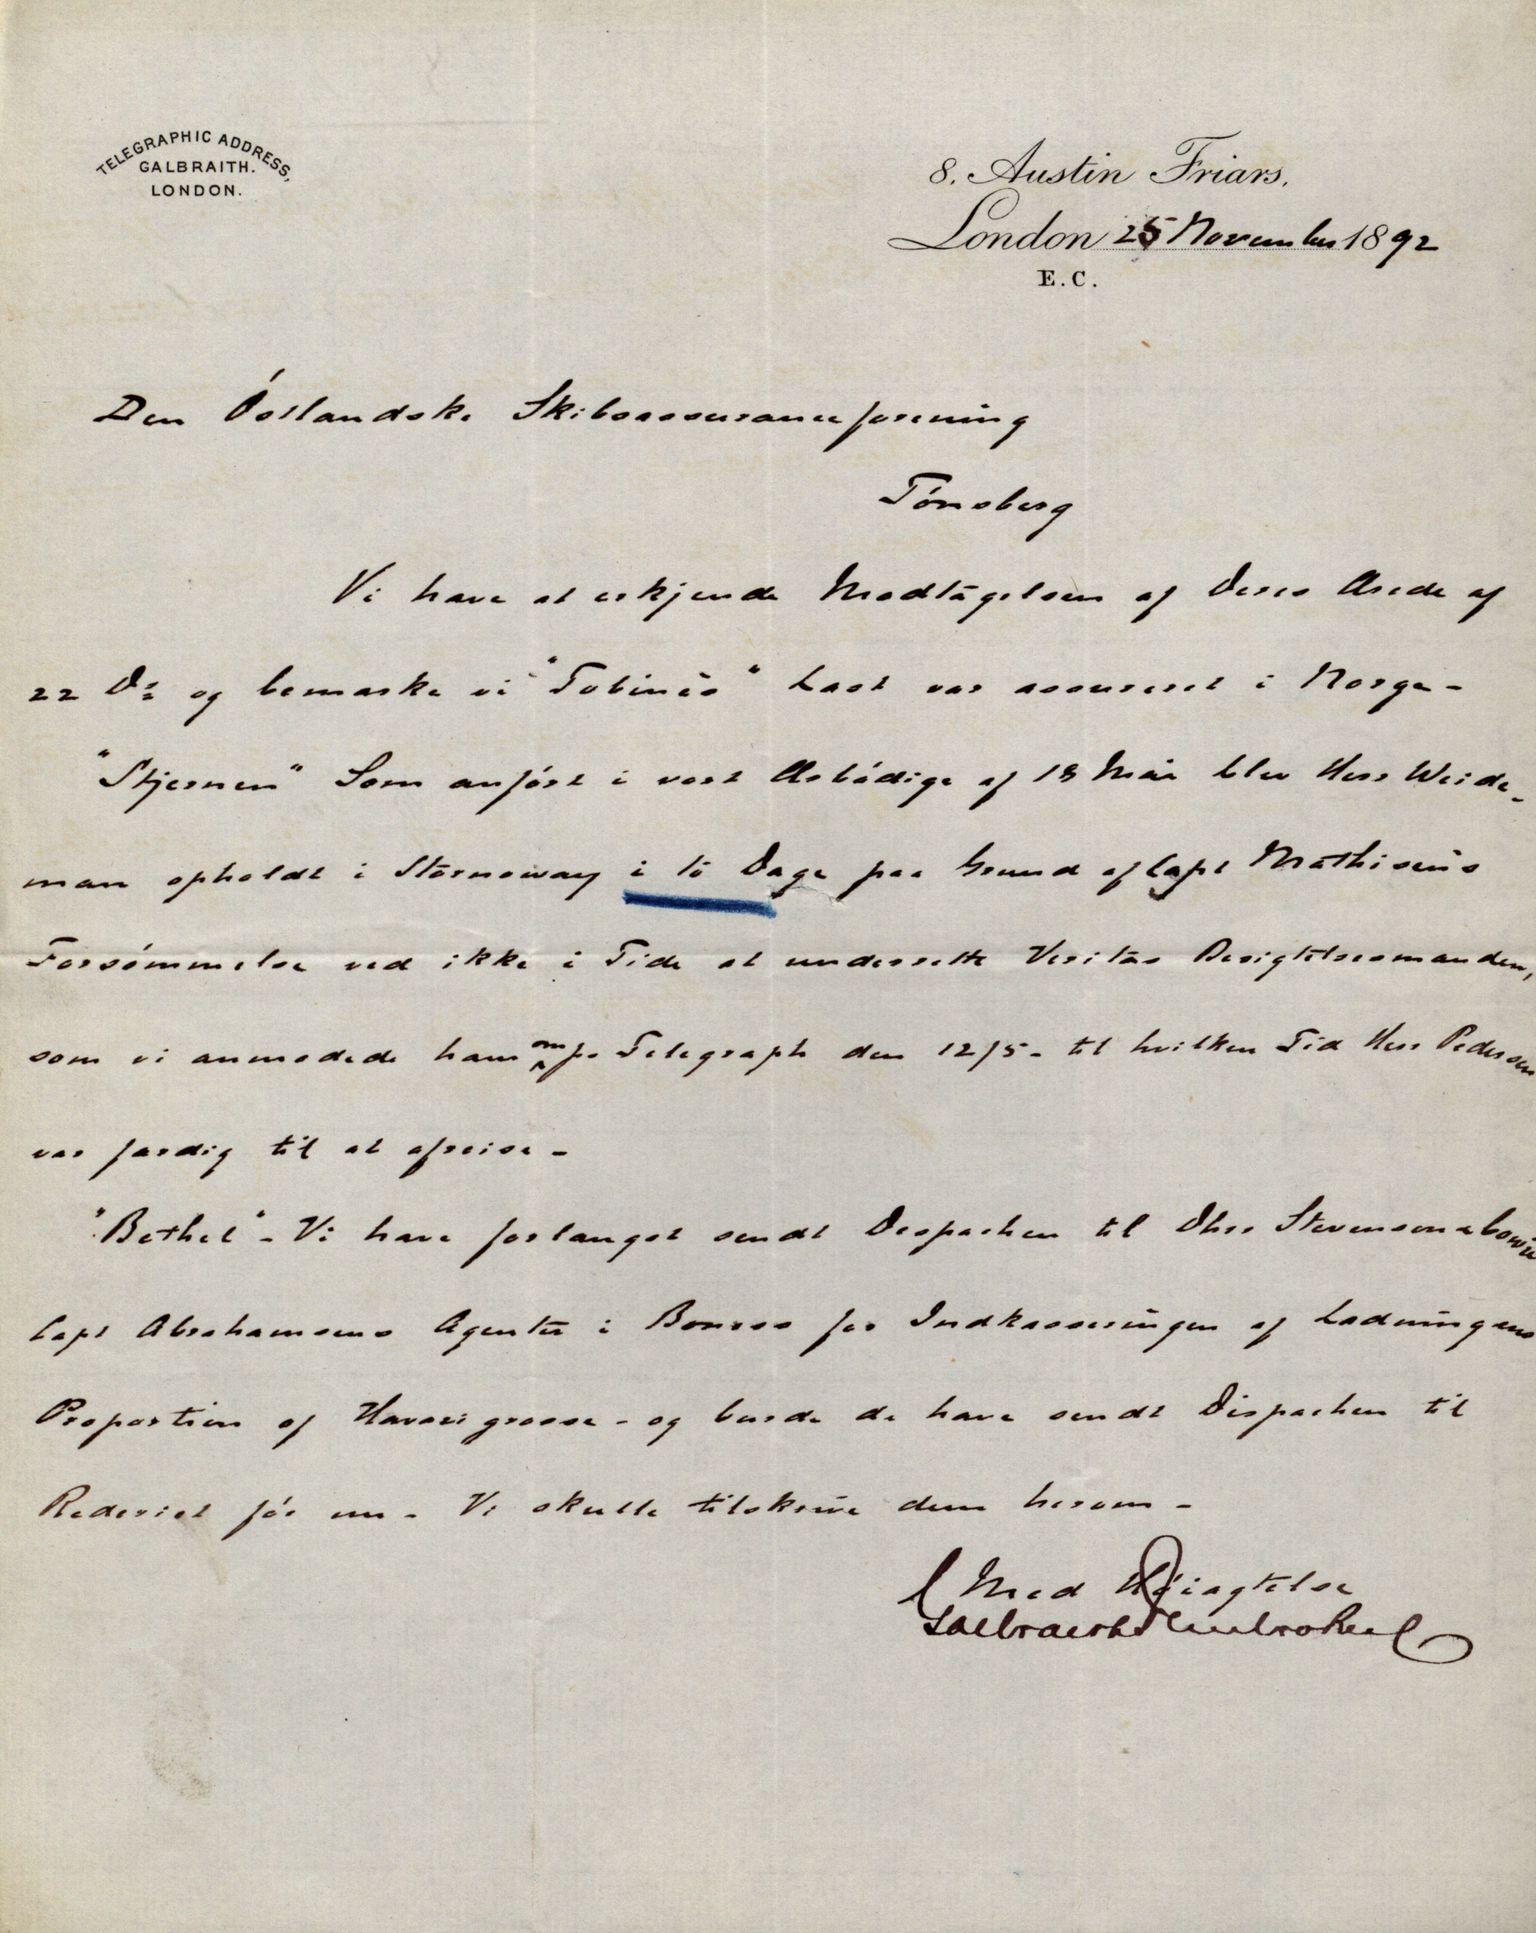 TELEGRAPHIC ADDRESS,
GALBRAITH.
LONDON.
8, Austin Friars,
London 25 November 1892
E.C.
Den Óstlandske Skibsassuranceforening
Tónsberg
Vi have at erkjende Modtagelsen af Deres Ærede af
22 Ds og bemærke vi "Tobines" Last var assureret i Norge -
"Stjernen" Som anfórt i vort Ærbódige af 18 Mai blev Herr Weide-
man opholdt i Stornoway i to Dage paa Grund af Capt Mathisens
Forsómmelse ved ikke i Tide at underrette Veritas Besigtelsesmanden,
som vi anmodede ham om pr Telegraph den 12/5 - til hvilken Tid Herr Pedersen
var færdig til at afreise -
"Bethel" - Vi have forlængst sendt Despachen til Dhrr Stevenson &
Capt Abrahamsens Agenter i for Indkasseringen af Ladningens
Proportion af Havari grosse - og burde de have sendt Dispachen til
Rederiet fór nu - Vi skulle tilskrive dem herom -
Med Hóiagtelse
Galbraith Pembroke &